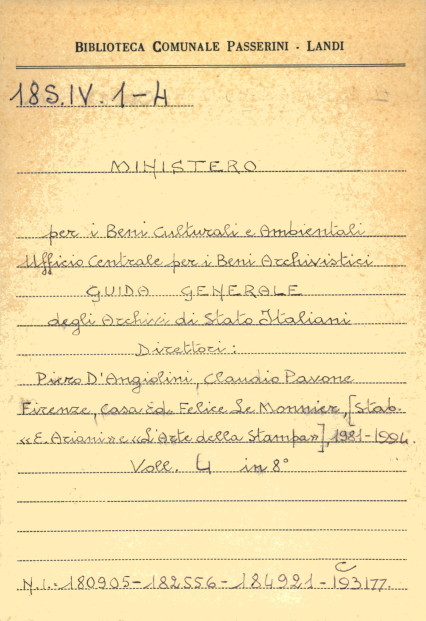 BIBLIOTECA COMUNALE PASSERINI - LANDI
18S.IV.1-4
MINISTERO
per i Beni Culturali e Ambientali
Ufficio Centrale per i Beni Archivistici
GUIDA GENERALE
degli Archivi di Stato Italiani
Direttori:
Piero D'Angiolini, Claudio Pavone
Firenze, Casa Ed. Felice Le Monnier, [Stab.
«E. Ariani» e «L'Arte della Stampa»], 1981-1994.
Voll. 4 in 8°
C
N.i. 180905-182556-184921-193177.